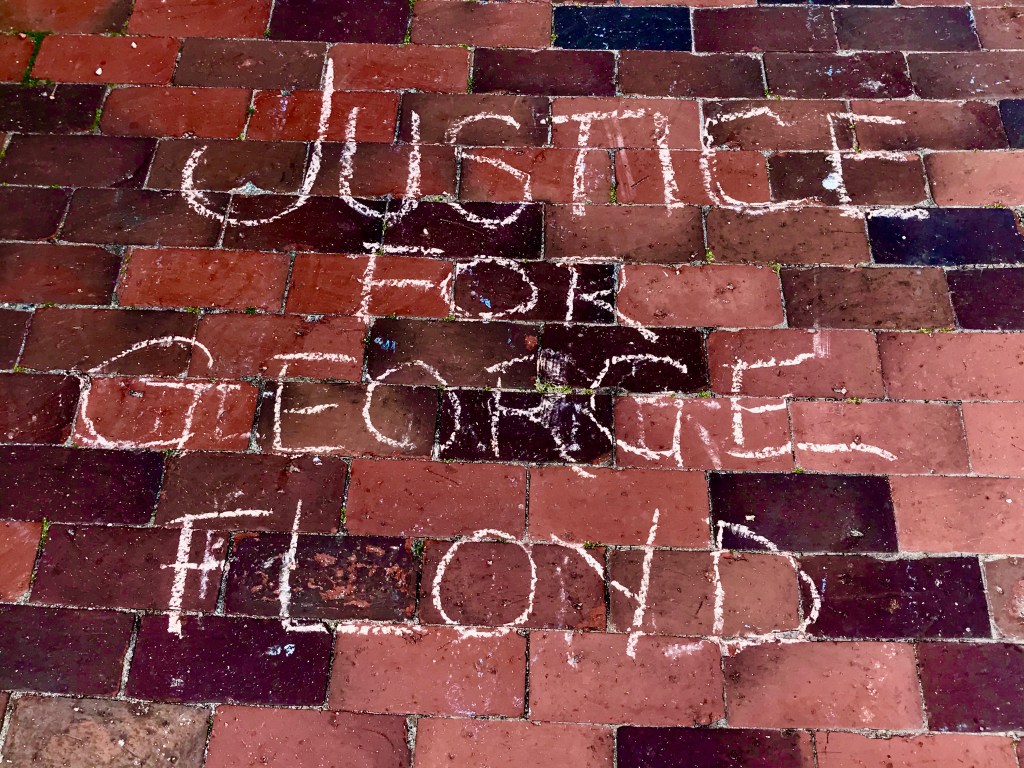 JUSTICE
FOR
GEORGE
FLOYD